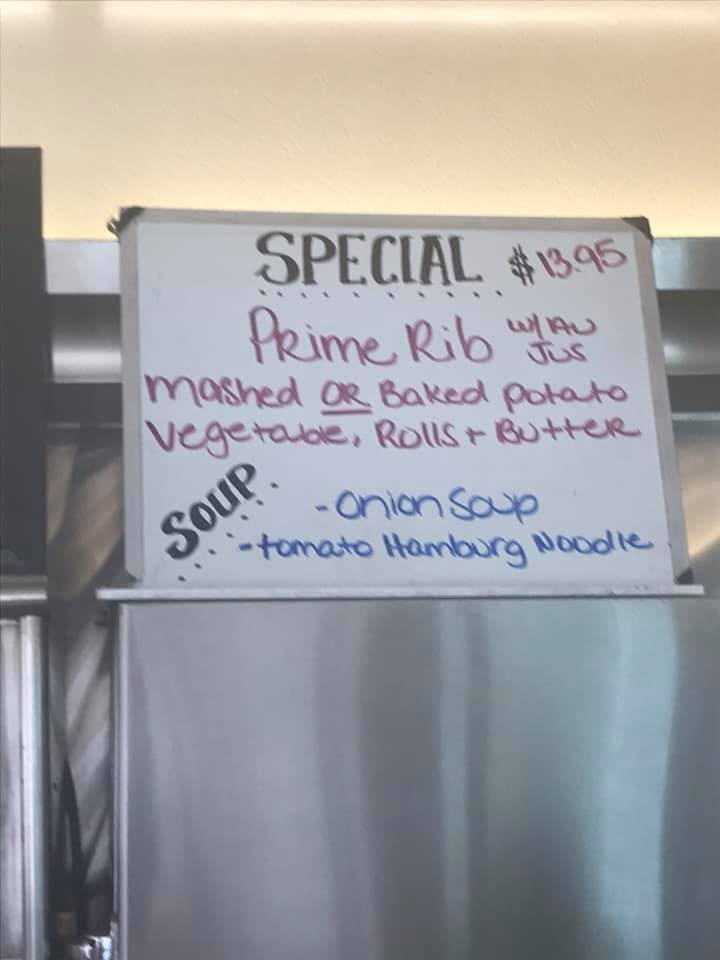 SPECIAL $13.95
Prime Rib w/ AU JUS
mashed OR Baked potato
Vegetable, Rolls + Butter
SOUP
- onion Soup
- tomato Hamburg Noodle